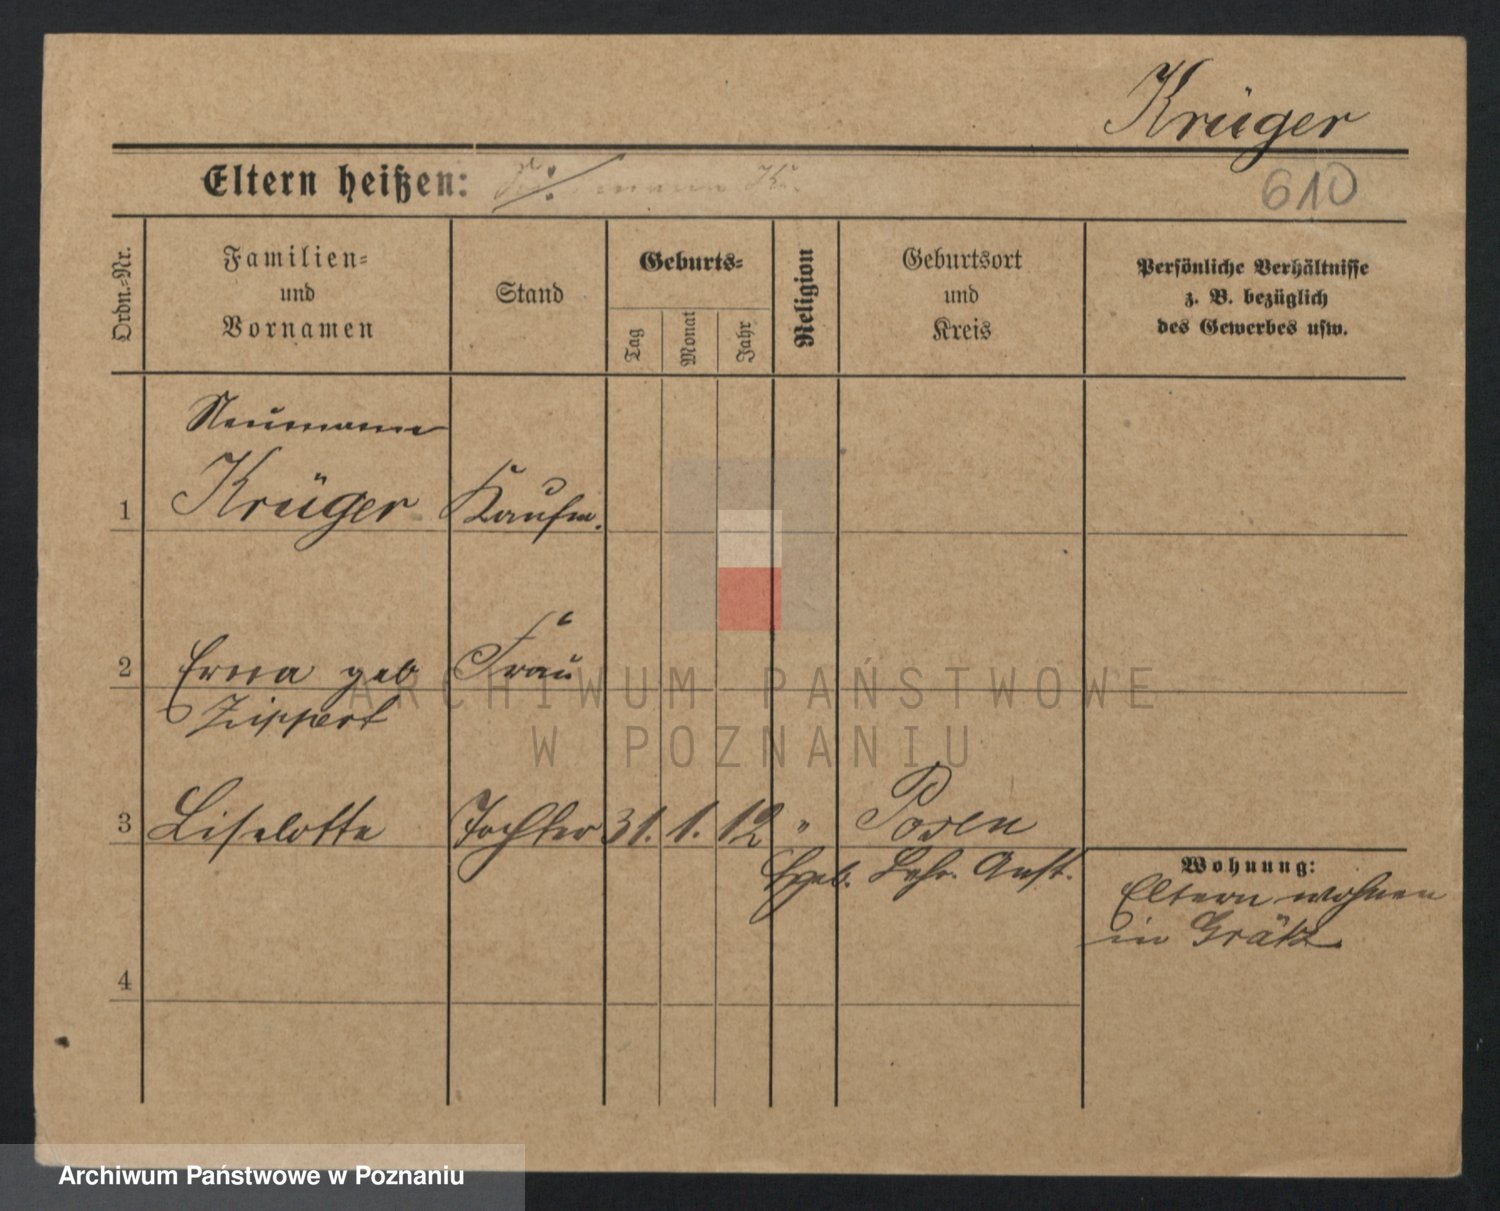 Krüger
Eltern heißen:
610
Ordn.=Nr.
Familien=
und
Vornamen
Stand
Geburts=
Tag
Monat
Jahr
Religion
Geburtsort
und
Kreis
Persönliche Verhältnisse
z. B. bezüglich
des Gewerbes usw.
Neumann
1 Krüger Kaufm.
2 Erna geb Frau
Zippert
ARCHIWUM PAŃSTWOWE
W POZNANIU
3 Liselotte Tochter 31. 1. 12 " Posen
Hgeb. Lehr. Anst.
Wohnung:
Eltern wohnen
in Grätz
4
Archiwum Państwowe w Poznaniu